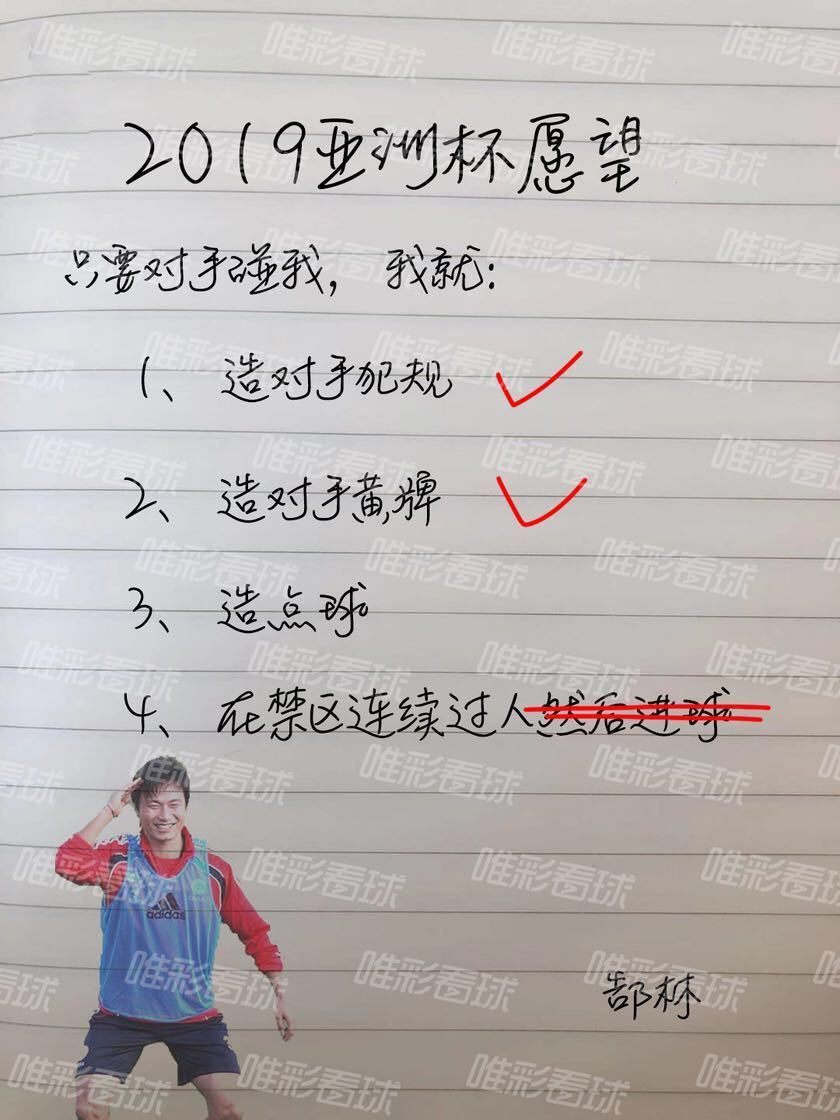 2019亚洲杯愿望
只要对手碰我，我就：
1、造对手犯规
2、造对手黄牌
3、造点球
4、在禁区连续过人然后进球
adidas
郜林
唯彩看球